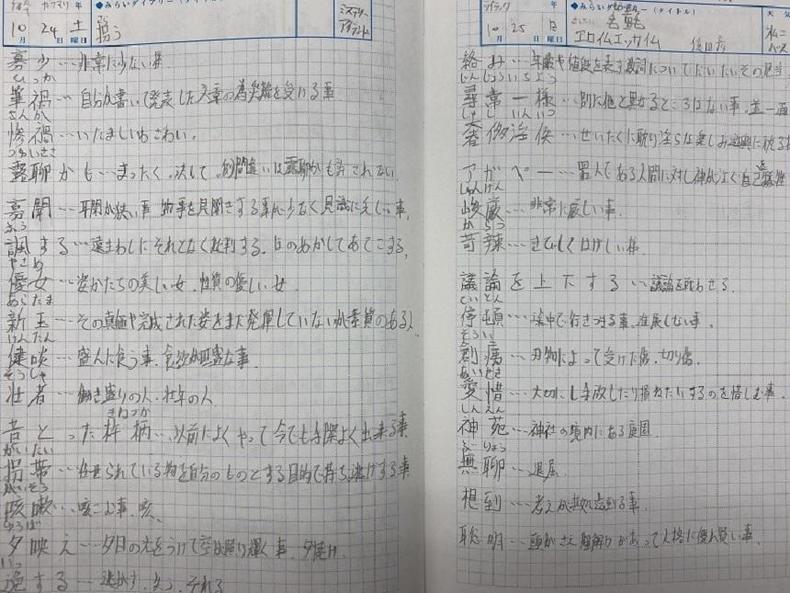 ◆みらいダイアリー(タイトル)
10月 24日 土曜日
寡少…非常に少ない様
ひっか
筆禍…自分が書いて発表した文章の為災難を受ける事
さんか
惨禍…いたましいわざわい。
つゆいささ
露聊かも…まったく、決して
寡聞…事
ふう
諷する…遠まわしにそれとなく批判する。
やさめ
優女…姿かたちの美しい女、性質の優しい女
あらたま
新玉…その真価や完成された姿をまだ発揮していないが素質のある人
けんたん
健啖…盛んに食う事、食欲が旺盛な事
そうしゃ
壮者…働き盛りの人、壮年の人
きねづか
昔とった杵柄…以前によくやって今でも手際よく出来る事
かいたい
拐帯…任せられている物を自分のものとする目的で持ち逃げする事
がいそう
咳嗽…咳こむ事、咳、
ゆうばえ
夕映え…夕日の光をうけて空が照り輝く事、夕焼け
いっ
逸する…逃がす、失う、それる
◆みらいダイアリー(タイトル)
10月 25日 日曜日
エロイムエッサイム
絡み…年齢や値段を表す数詞についてだいたいその見当
じんじょういちよう
尋常一様…別に他と異なるところがない事、並一通
しゃしいんいつ
奢侈淫佚…せいたくに
アガペー…罪人である人間に対し神が自己犠牲
しゅんげん
峻厳…非常に厳しい事
からつ
苛辣…きびしくはげしい様
議論を上下する…議論を戦わせる
ていとん
停頓…途中で行きづまる事、進展しない事、
そうい
創痍…刃物によって受けた傷、切り傷、
あいせき
愛惜…大切にし手放したり損ねたりするのを惜しむ事
しんえん
神苑…神社の境内にある庭園
ぶりょう
無聊…退屈
想到…考えがある事
聡明…頭がさえ理解力があって人格に優れ賢い事、